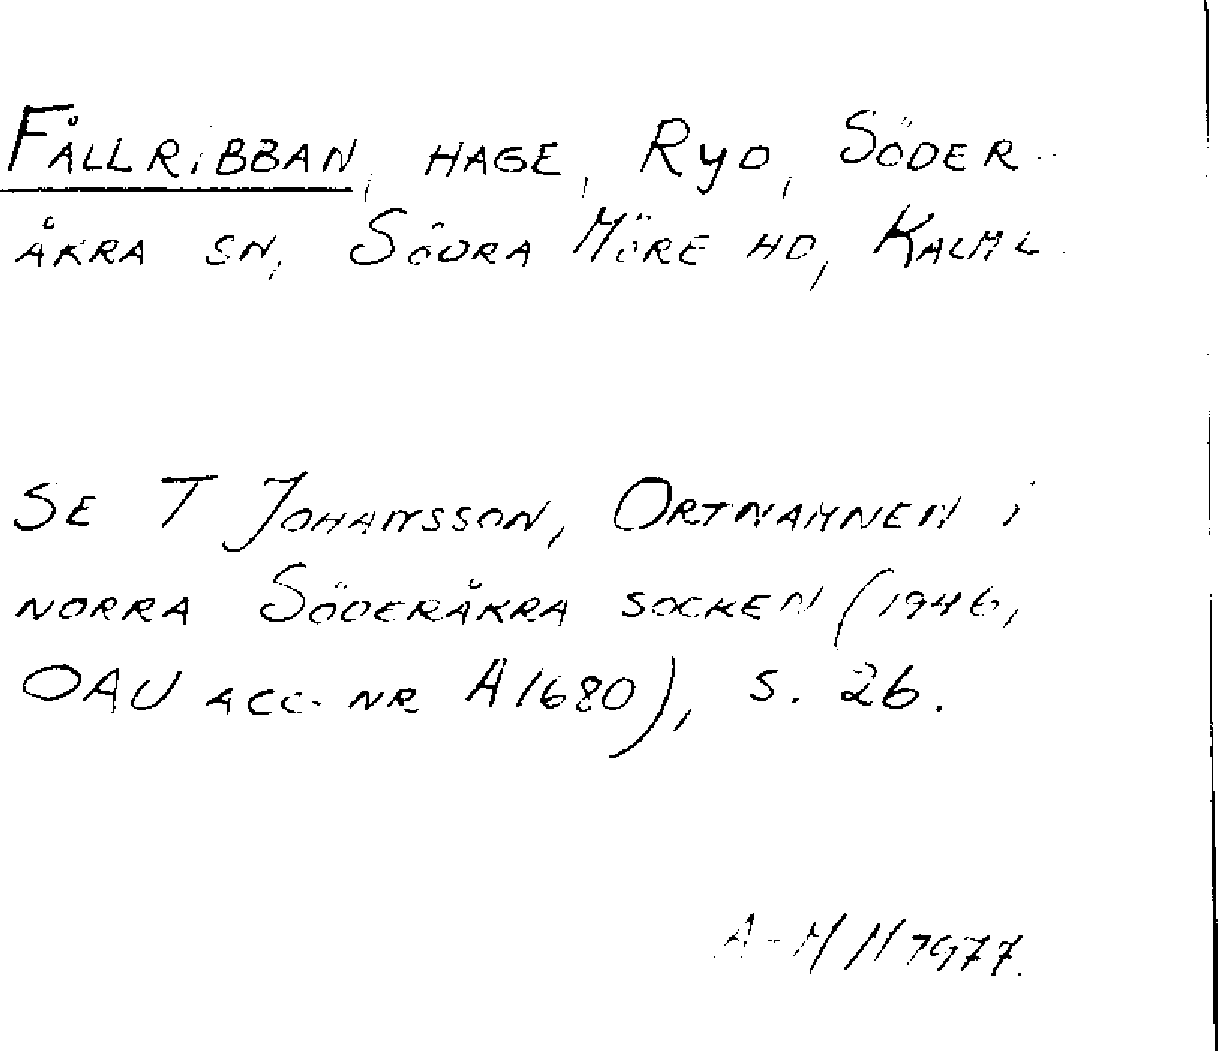 FÅLLRIBBAN, HAGE, RYD, SÖDER-
ÅKRA SN, SÖDRA MÖRE HD, KALM L.
SE T JOHANSSON, ORTNAMNEN I
NORRA SÖDERÅKRA SOCKEN (1946,
OAU ACC. NR A1680), S. 26.
A-M H 1977.